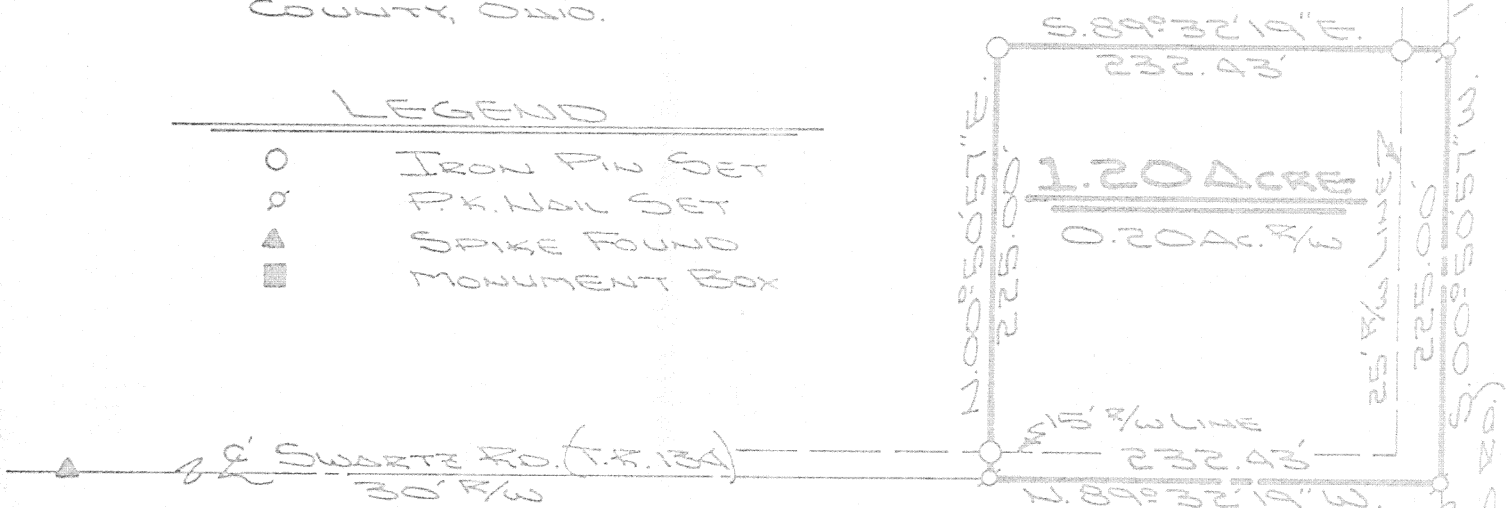 COUNTY, OHIO.
LEGEND
IRON PIN SET
P.K. NAIL SET
SPIKE FOUND
MONUMENT BOX
S.89°32'19"E.
232.43'
N.0°50'57"E.
225.00'
1.20 ACRE
0.20 AC. R/W
25' R/W LINE
225.00'
S.0°50'57"W.
15' R/W LINE
232.43'
N.89°32'19"W.
℄ SWARTZ RD. (T.R. 134)
30' R/W